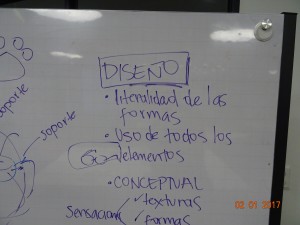 DISEÑO
• literalidad de las
formas
• Uso de todos los
elementos
• CONCEPTUAL
Sensacion
✓ texturas
✓ formas
soporte
soporte
02 01 2017